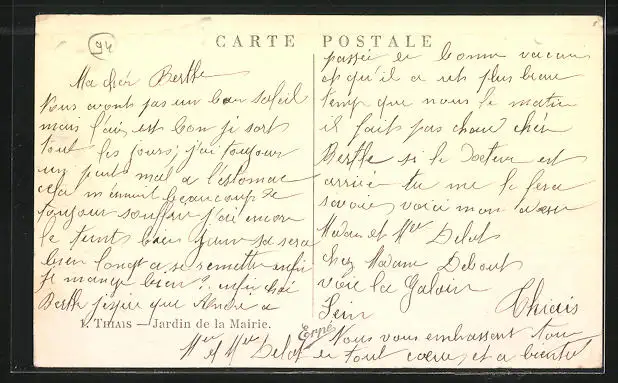 94
CARTE POSTALE
Ma chér Berthe
Nous avons pas un bon soleil
mais l'air est bon je sort
tout les jours, j'ai toujour
un peut mal a l'estomac
cela m'ennuit beaucoup de
toujour souffrir j'ai encore
le teint bien jaune sa sera
bien longt a se remettre enfin
je mange bien
Berthe j'espère que André a
passée de bonne vacances
et qu'il a ut plus beau
temp que nous le matin
il fait pas chaud chér
Berthe si le docteur est
arrivée tu me le fera
savoir, voici mon adresse
Madame Debout
Thiais
Seine
1. THIAIS — Jardin de la Mairie.
Erpé
Nous vous embrassent tous
de tout coeur, et a bientôt
Mr et Me Delot